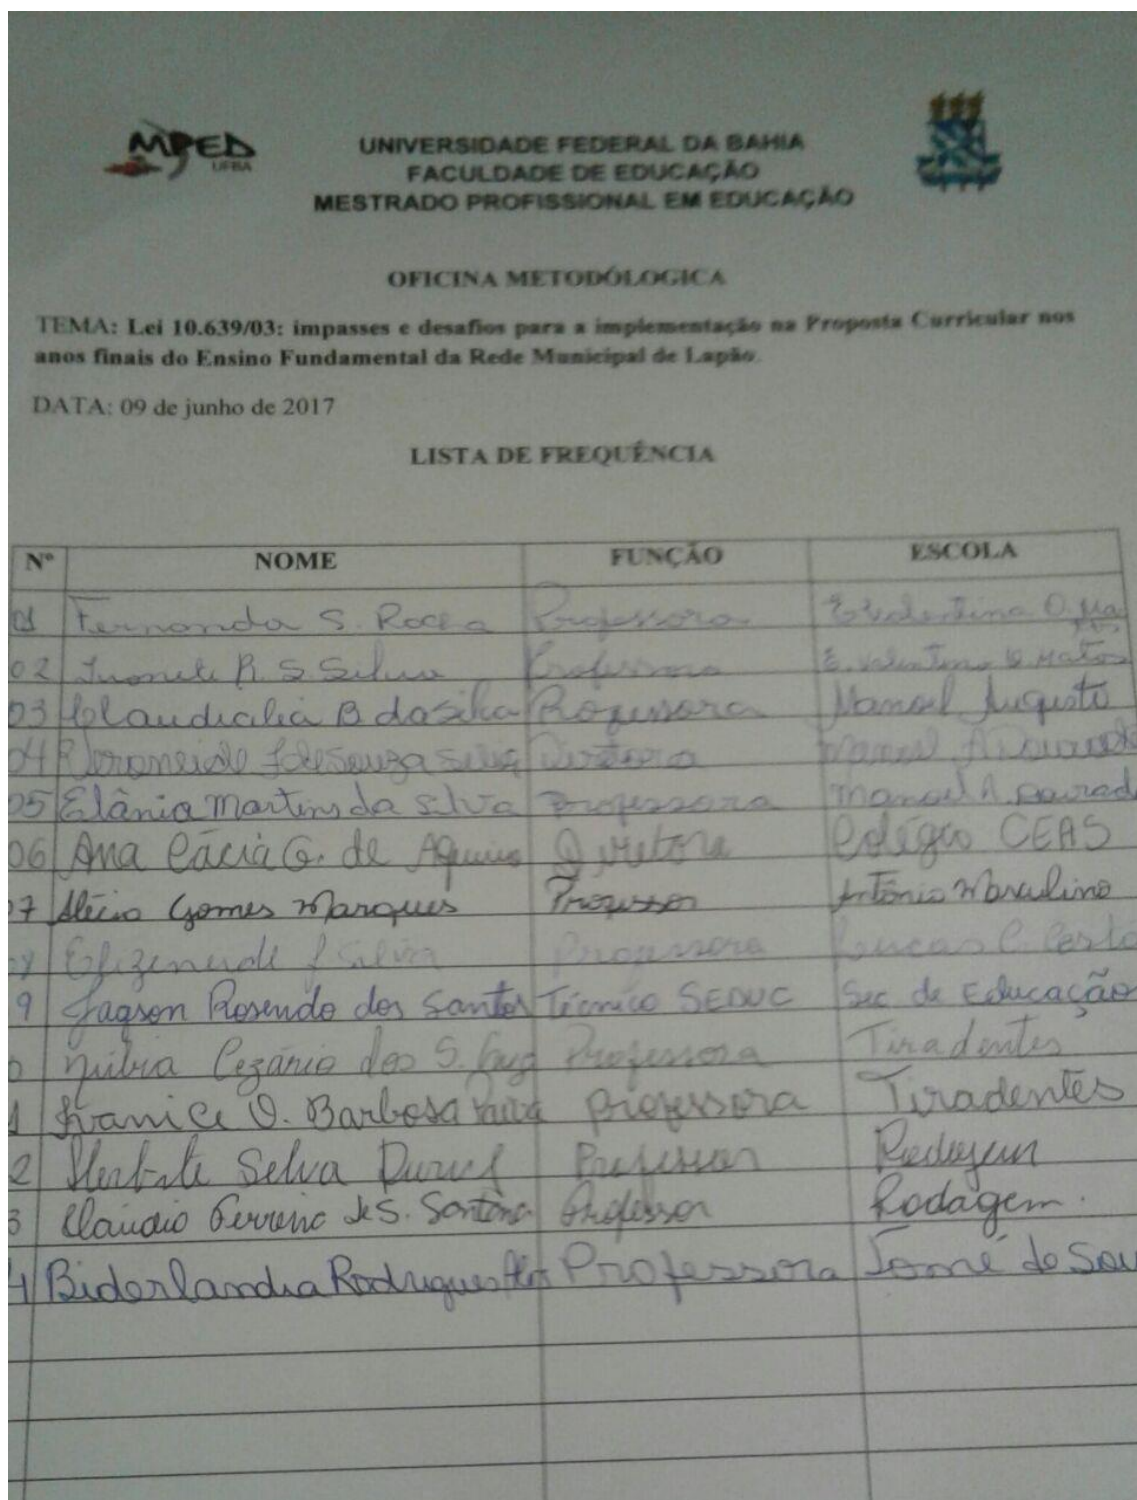 MPED
UFBA
UNIVERSIDADE FEDERAL DA BAHIA
FACULDADE DE EDUCAÇÃO
MESTRADO PROFISSIONAL EM EDUCAÇÃO
OFICINA METODÓLOGICA
TEMA: Lei 10.639/03: impasses e desafios para a implementação na Proposta Curricular nos
anos finais do Ensino Fundamental da Rede Municipal de Lapão.
DATA: 09 de junho de 2017
LISTA DE FREQUÊNCIA
Nº NOME FUNÇÃO ESCOLA
01 Fernanda S. Rocha Professora
02 Ivonete R. S. Silva Professora E. Valentina O. Matos
03 Claudicélia B da Silva Professora Manoel Augusto
04 de Souza Silva Diretora Manoel A Dourado
05 Elânia Martins da Silva Professora Manoel A. Dourad
06 Ana Cácia G. de Aquino Diretora Colégio CEAS
7 Alécio Gomes Marques Professor Antônio Marculino
Silva Professora Lucas C.
9 Jagson Rosendo dos Santos Técnico SEDUC Sec de Educação
Núbia Cezário dos S. Professora Tiradentes
1 Ivanice O. Barbosa Paiva Professora Tiradentes
2 Silva Professor Rodagem
3 Claudio Ferreira de S. Santana Professor Rodagem.
4 Biderlandia Rodrigues Professora Tomé de Sou